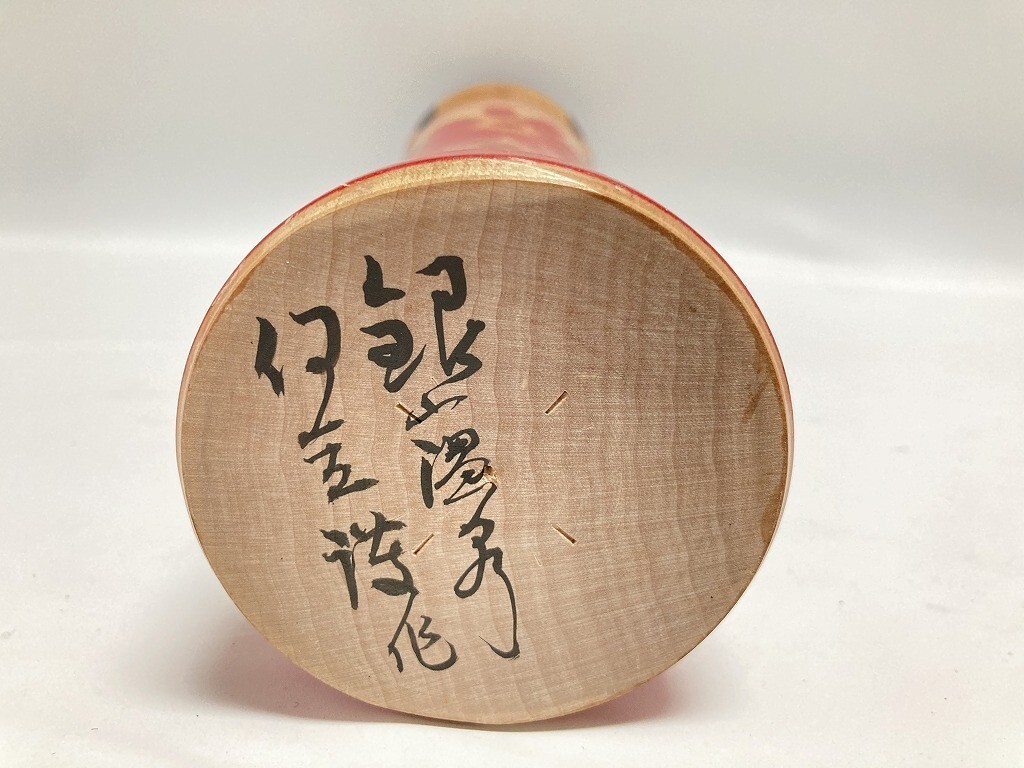 銀山温泉
伊豆護作